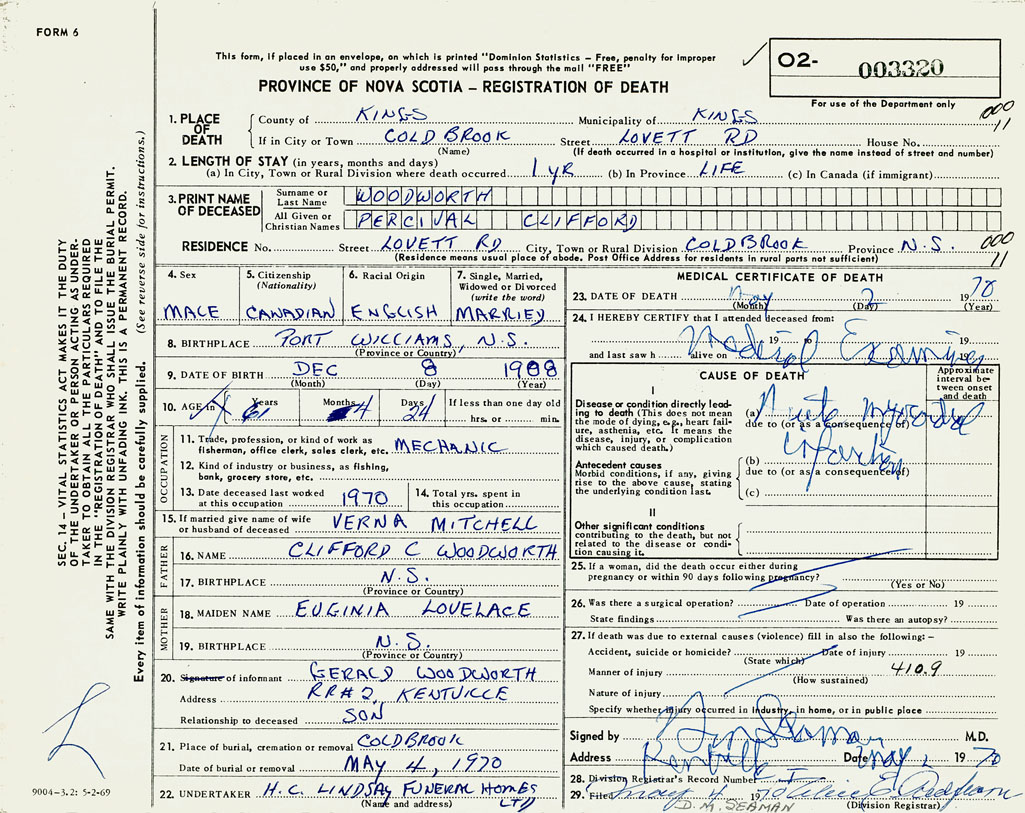 FORM 6
This form, if placed in an envelope, on which is printed "Dominion Statistics – Free, penalty for improper
use $50," and properly addressed will pass through the mail "FREE"
O2- 003320
For use of the Department only
PROVINCE OF NOVA SCOTIA – REGISTRATION OF DEATH
000
11
1. PLACE OF DEATH
County of KINGS Municipality of KINGS
If in City or Town COLDBROOK Street LOVETT RD House No.
(Name) (If death occurred in a hospital or institution, give the name instead of street and number)
2. LENGTH OF STAY (in years, months and days)
(a) In City, Town or Rural Division where death occurred 1 YR (b) In Province LIFE (c) In Canada (if immigrant)
3. PRINT NAME OF DECEASED
Surname or Last Name WOODWORTH
All Given or Christian Names PERCIVAL CLIFFORD
RESIDENCE No. Street LOVETT RD City, Town or Rural Division COLDBROOK Province N.S.
000
11
(Residence means usual place of abode. Post Office Address for residents in rural parts not sufficient)
4. Sex
MALE
5. Citizenship
(Nationality)
CANADIAN
6. Racial Origin
ENGLISH
7. Single, Married,
Widowed or Divorced
(write the word)
MARRIED
8. BIRTHPLACE PORT WILLIAMS, N.S.
(Province or Country)
9. DATE OF BIRTH DEC 8 1908
(Month) (Day) (Year)
10. AGE in Years 61 Months 4 Days 24 If less than one day old
hrs. or min.
OCCUPATION
11. Trade, profession, or kind of work as
fisherman, office clerk, sales clerk, etc. MECHANIC
12. Kind of industry or business, as fishing,
bank, grocery store, etc.
13. Date deceased last worked
at this occupation 1970
14. Total yrs. spent in
this occupation
15. If married give name of wife
or husband of deceased VERNA MITCHELL
FATHER
16. NAME CLIFFORD C WOODWORTH
17. BIRTHPLACE N.S.
(Province or Country)
MOTHER
18. MAIDEN NAME EUGINIA LOVELACE
19. BIRTHPLACE N.S.
(Province or Country)
20. Signature of informant GERALD WOODWORTH
Address RR#2, KENTVILLE
Relationship to deceased SON
21. Place of burial, cremation or removal COLDBROOK
Date of burial or removal MAY 4, 1970
22. UNDERTAKER H.C. LINDSAY FUNERAL HOMES LTD
(Name and address)
MEDICAL CERTIFICATE OF DEATH
23. DATE OF DEATH May 2 1970
(Month) (Day) (Year)
24. I HEREBY CERTIFY that I attended deceased from:
19 to 19
and last saw h alive on 19
Medical Examiner
CAUSE OF DEATH
Approximate
interval be-
tween onset
and death
I
Disease or condition directly lead-
ing to death (This does not mean
the mode of dying, e.g., heart fail-
ure, asthenia, etc. It means the
disease, injury, or complication
which caused death.)
(a) Acute myocardial
due to (or as a consequence of)
infarction
Antecedent causes
Morbid conditions, if any, giving
rise to the above cause, stating
the underlying condition last.
(b)
due to (or as a consequence of)
(c)
II
Other significant conditions
contributing to the death, but not
related to the disease or condi-
tion causing it.
25. If a woman, did the death occur either during
pregnancy or within 90 days following pregnancy?
(Yes or No)
26. Was there a surgical operation? Date of operation 19
State findings Was there an autopsy?
27. If death was due to external causes (violence) fill in also the following: –
Accident, suicide or homicide? Date of injury 19
(State which)
Manner of injury 410.9
(How sustained)
Nature of injury
Specify whether injury occurred in industry, in home, or in public place
Signed by Seaman M.D.
Address Kentville Date May 2 1970
28. Division Registrar's Record Number
29. Filed May 4 1970
D. M. SEAMAN (Division Registrar)
SEC. 14 – VITAL STATISTICS ACT MAKES IT THE DUTY
OF THE UNDERTAKER OR PERSON ACTING AS UNDER-
TAKER TO OBTAIN ALL THE PARTICULARS REQUIRED
IN THE "REGISTRATION OF DEATH" AND TO FILE THE
SAME WITH THE DIVISION REGISTRAR WHO SHALL ISSUE THE BURIAL PERMIT.
WRITE PLAINLY WITH UNFADING INK. THIS IS A PERMANENT RECORD.
Every item of information should be carefully supplied. (See reverse side for instructions.)
9004-3.2: 5-2-69